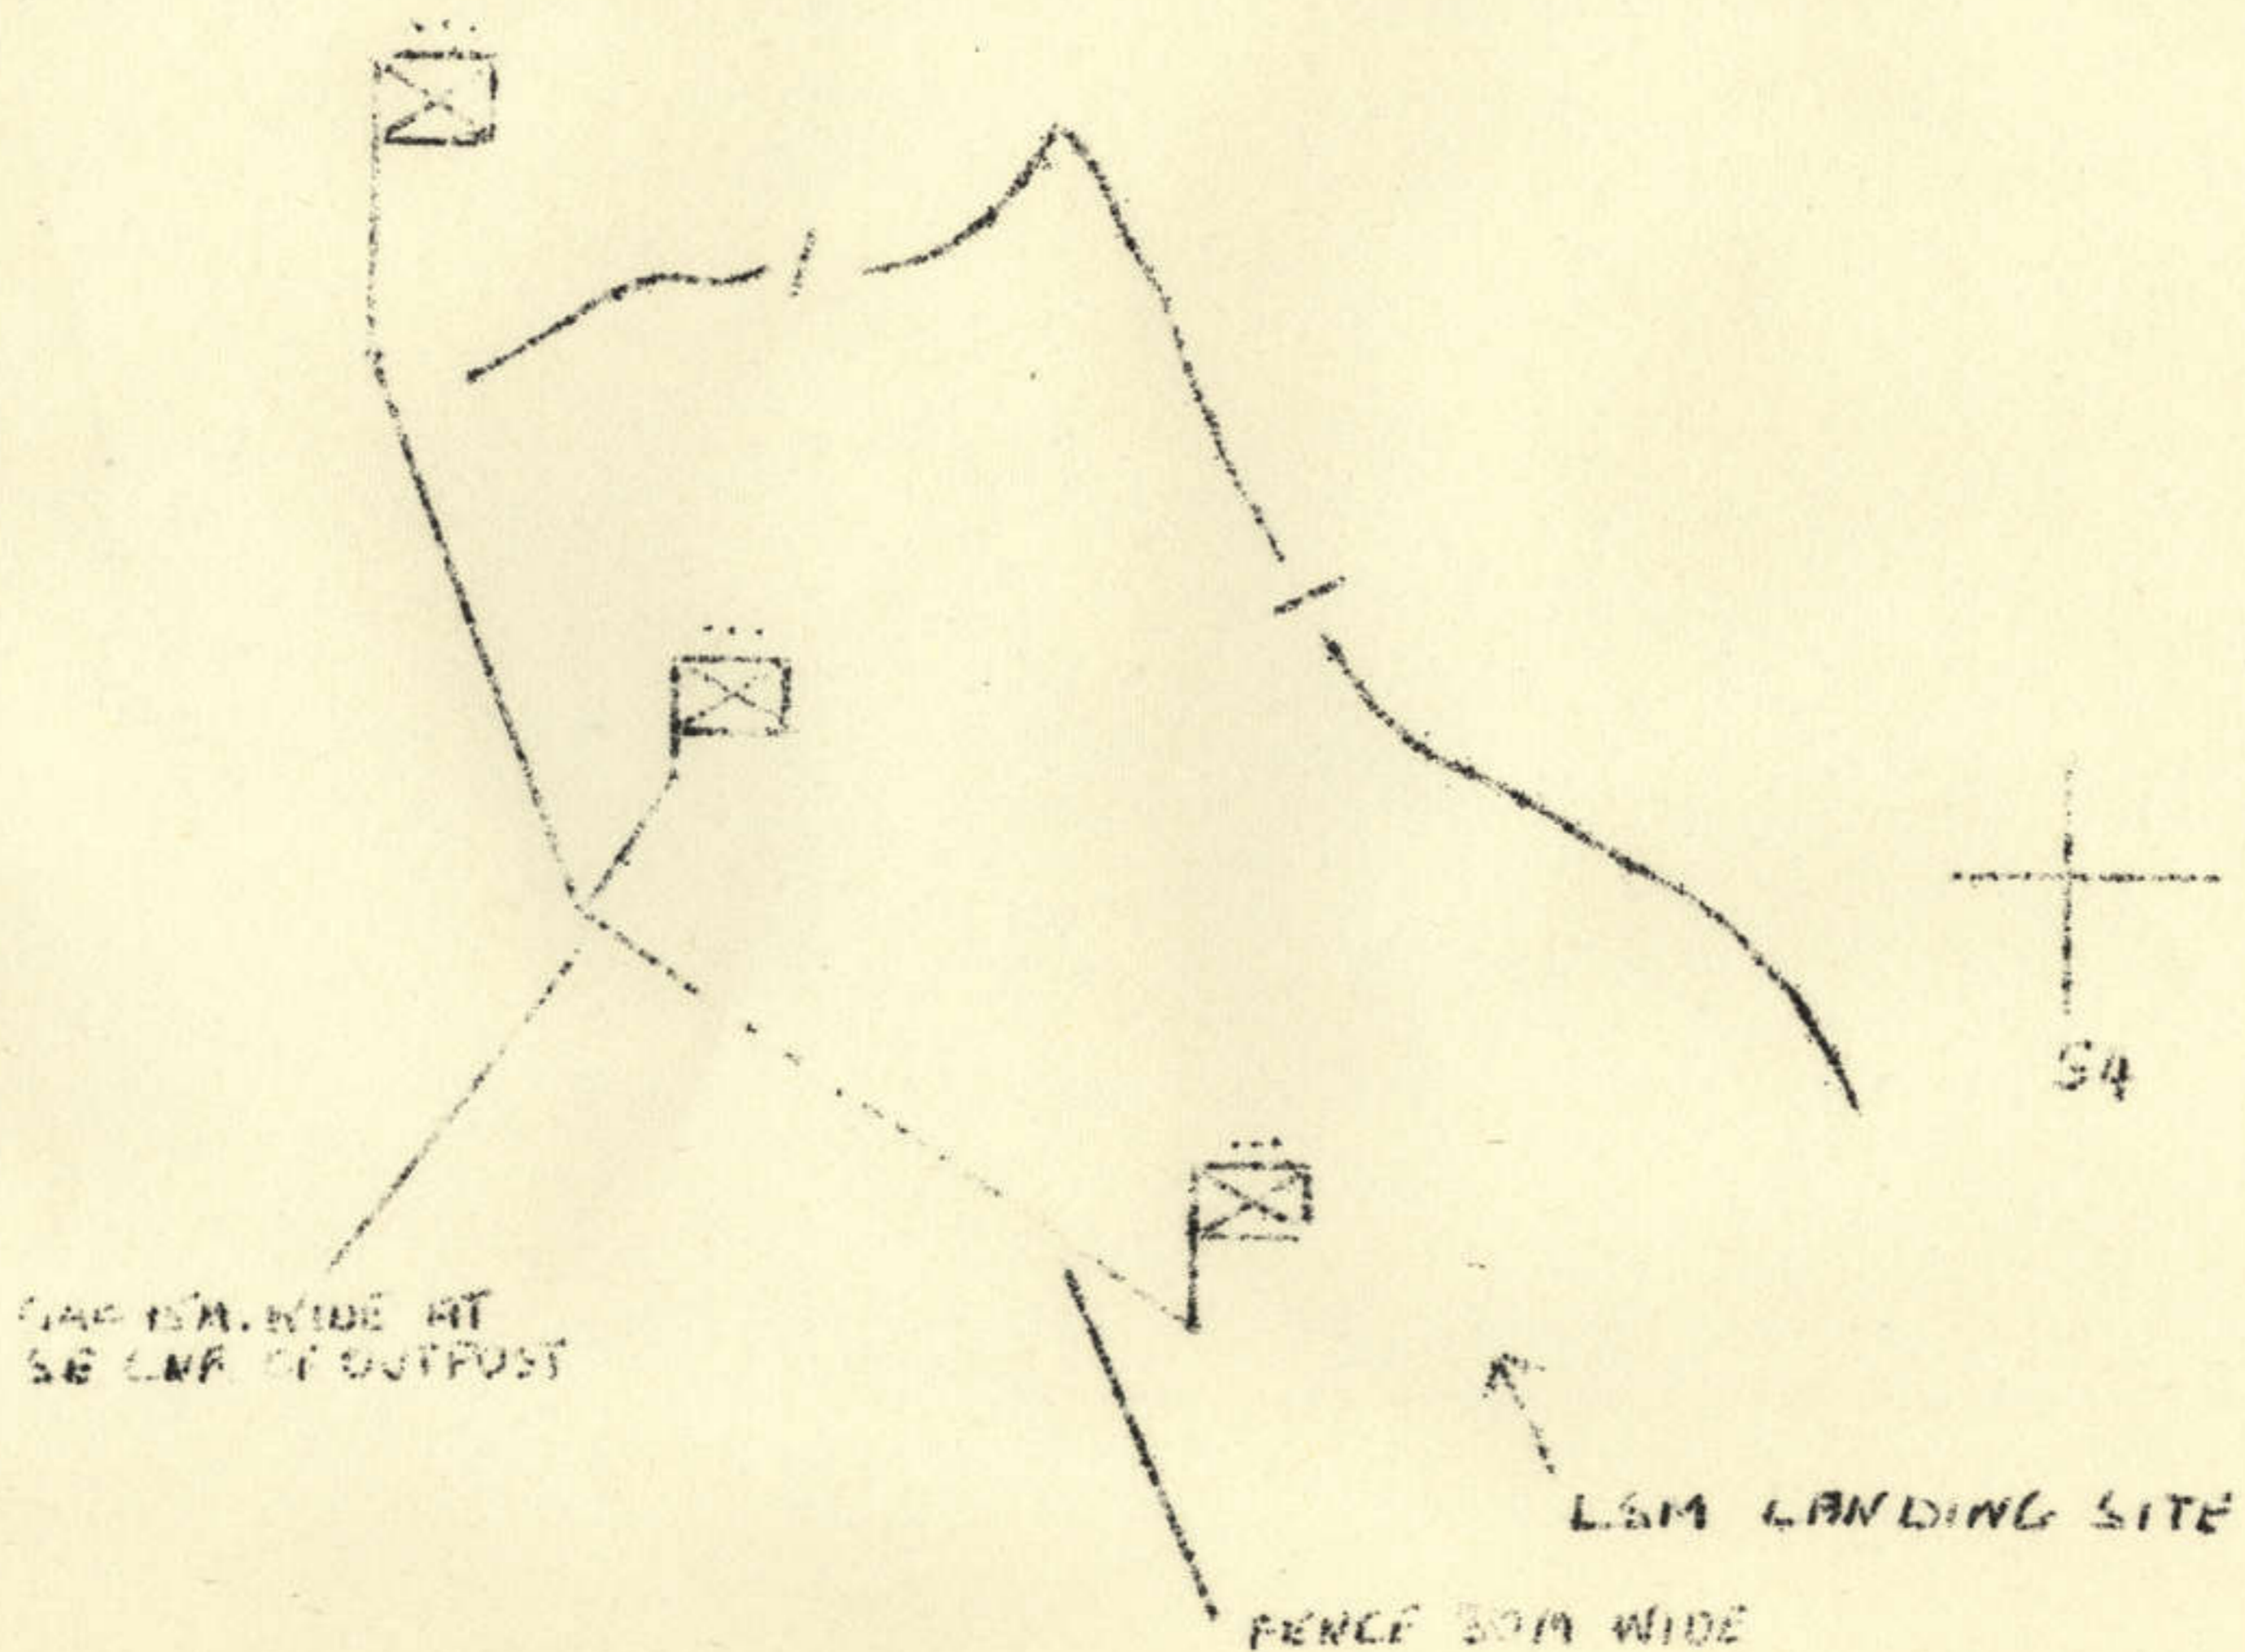 54
GAP 15M. WIDE AT
SE CNR OF OUTPOST
LSM LANDING SITE
FENCE 30M WIDE